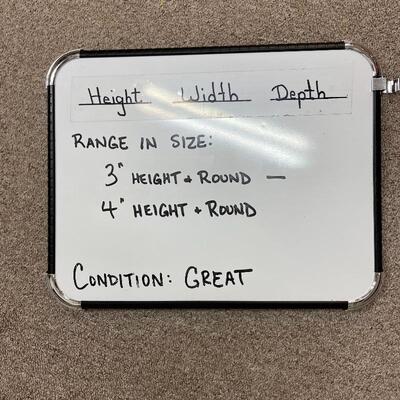 Height Width Depth
RANGE IN SIZE:
3" HEIGHT + ROUND —
4" HEIGHT + ROUND
CONDITION: GREAT